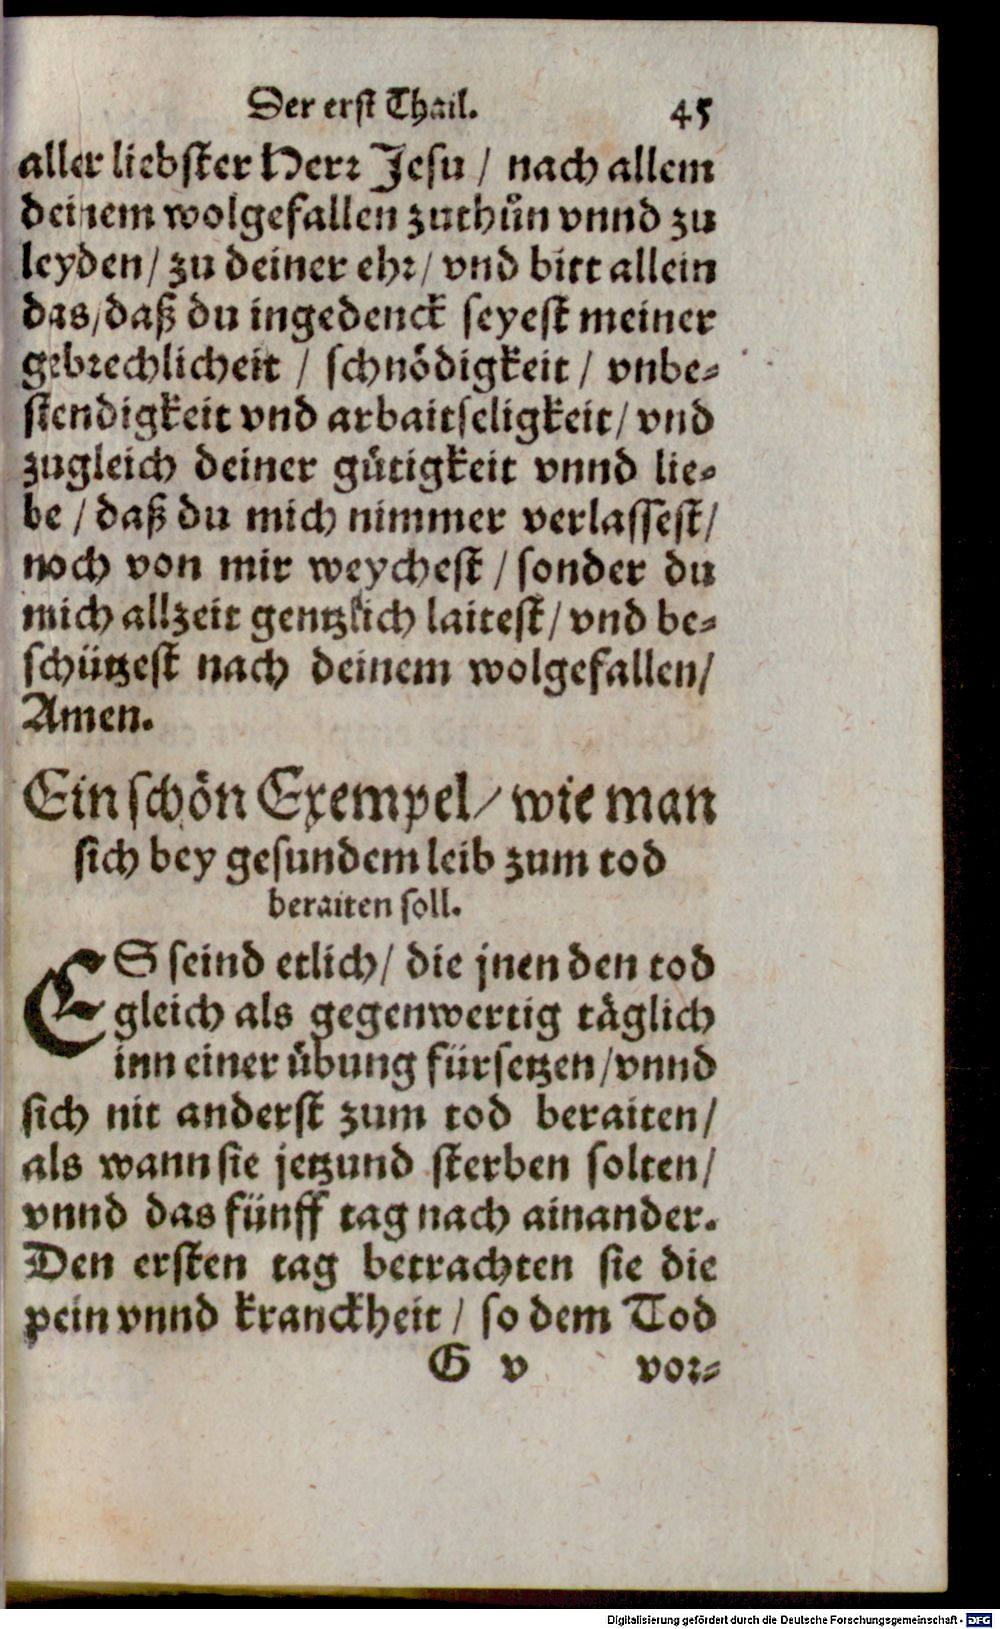 Der erst Thail. 45
aller liebster Herr Jesu / nach allem
deinem wolgefallen zuthůn vnnd zu
leyden / zu deiner ehr / vnd bitt allein
das / daß du ingedenck seyest meiner
gebrechlicheit / schnödigkeit / vnbe-
stendigkeit vnd arbaitseligkeit / vnd
zugleich deiner gütigkeit vnnd lie-
be / daß du mich nimmer verlassest /
noch von mir weychest / sonder du
mich allzeit gentzlich laitest / vnd be-
schützest nach deinem wolgefallen /
Amen.
Ein schön Exempel / wie man
sich bey gesundem leib zum tod
beraiten soll.
ES seind etlich / die jnen den tod
gleich als gegenwertig täglich
inn einer übung fürsetzen / vnnd
sich nit anderst zum tod beraiten /
als wann sie jetzund sterben solten /
vnnd das fünff tag nach ainander.
Den ersten tag betrachten sie die
pein vnnd kranckheit / so dem Tod
G v vor-
Digitalisierung gefördert durch die Deutsche Forschungsgemeinschaft - DFG